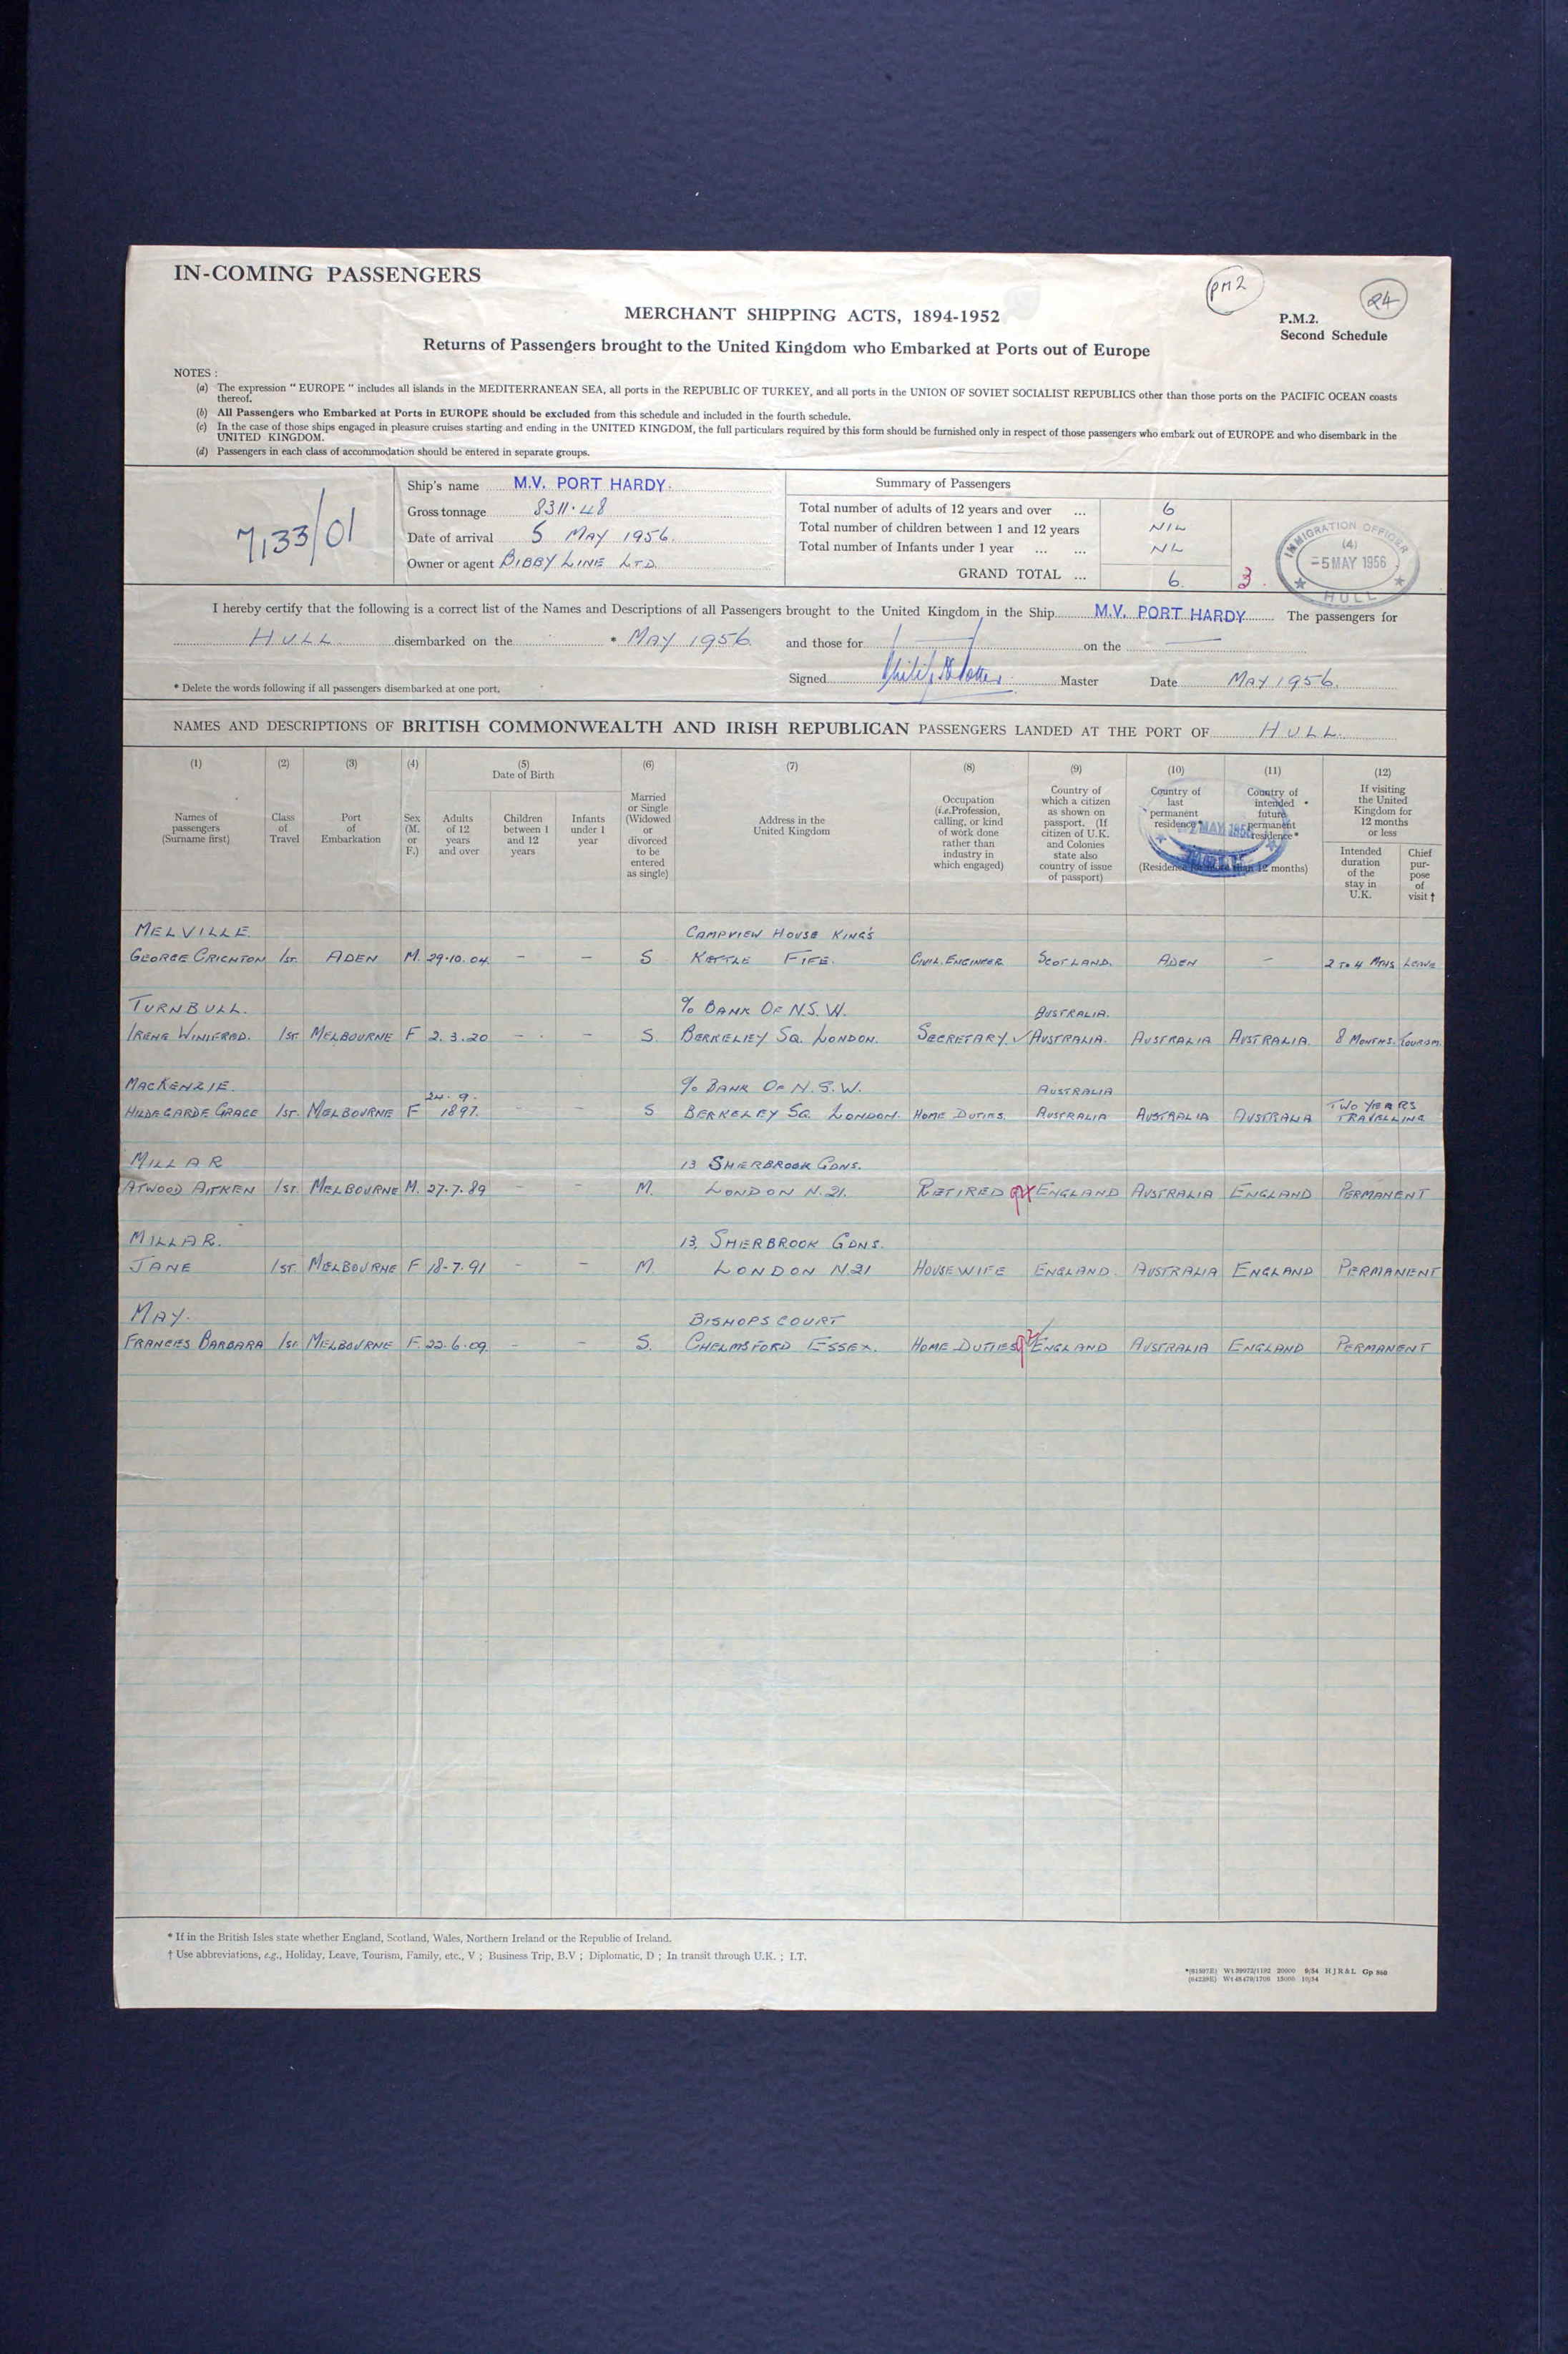 IN-COMING PASSENGERS
PM2
24
P.M.2.
Second Schedule
MERCHANT SHIPPING ACTS, 1894-1952
Returns of Passengers brought to the United Kingdom who Embarked at Ports out of Europe
NOTES :
(a) The expression " EUROPE " includes all islands in the MEDITERRANEAN SEA, all ports in the REPUBLIC OF TURKEY, and all ports in the UNION OF SOVIET SOCIALIST REPUBLICS other than those ports on the PACIFIC OCEAN coasts
thereof.
(b) All Passengers who Embarked at Ports in EUROPE should be excluded from this schedule and included in the fourth schedule.
(c) In the case of those ships engaged in pleasure cruises starting and ending in the UNITED KINGDOM, the full particulars required by this form should be furnished only in respect of those passengers who embark out of EUROPE and who disembark in the
UNITED KINGDOM.
(d) Passengers in each class of accommodation should be entered in separate groups.
7,133/01
Ship's name M.V. PORT HARDY.
Gross tonnage 8311.48
Date of arrival 5 MAY 1956.
Owner or agent BIBBY LINE LTD.
Summary of Passengers
Total number of adults of 12 years and over ... 6
Total number of children between 1 and 12 years NIL
Total number of Infants under 1 year ... ... NIL
GRAND TOTAL ... 6. 3
IMMIGRATION OFFICER
(4)
-5 MAY 1956
HULL
I hereby certify that the following is a correct list of the Names and Descriptions of all Passengers brought to the United Kingdom in the Ship M.V. PORT HARDY The passengers for
HULL disembarked on the * MAY 1956 and those for on the
Signed Master Date MAY 1956.
* Delete the words following if all passengers disembarked at one port.
NAMES AND DESCRIPTIONS OF BRITISH COMMONWEALTH AND IRISH REPUBLICAN PASSENGERS LANDED AT THE PORT OF HULL.
(1) Names of passengers (Surname first)
(2) Class of Travel
(3) Port of Embarkation
(4) Sex (M. or F.)
(5) Date of Birth
Adults of 12 years and over
Children between 1 and 12 years
Infants under 1 year
(6) Married or Single (Widowed or divorced to be entered as single)
(7) Address in the United Kingdom
(8) Occupation (i.e. Profession, calling, or kind of work done rather than industry in which engaged)
(9) Country of which a citizen as shown on passport. (If citizen of U.K. and Colonies state also country of issue of passport)
(10) Country of last permanent residence*
(11) Country of intended future permanent residence*
(Residence for more than 12 months)
(12) If visiting the United Kingdom for 12 months or less
Intended duration of the stay in U.K.
Chief purpose of visit †
MELVILLE. CAMPVIEW HOUSE KING'S
GEORGE CRICHTON 1ST. ADEN M. 29.10.04. - - S KETTLE FIFE. CIVIL. ENGINEER SCOTLAND. ADEN - 2 TO 4 MTHS LEAVE
TURNBULL. % BANK OF N.S.W. AUSTRALIA.
IRENE WINIFRED. 1ST MELBOURNE F 2.3.20 - - S. BERKELEY SQ. LONDON. SECRETARY. AUSTRALIA. AUSTRALIA AUSTRALIA. 8 MONTHS. TOURISM.
MACKENZIE. 24.9. % BANK OF N.S.W. AUSTRALIA TWO YEARS
HILDEGARDE GRACE 1ST. MELBOURNE F 1897. - - S BERKELEY SQ. LONDON. HOME DUTIES. AUSTRALIA AUSTRALIA AUSTRALIA TRAVELLING
MILLAR 13 SHERBROOK GDNS.
ATWOOD AITKEN 1ST. MELBOURNE M. 27.7.89 - - M. LONDON N.21. RETIRED ENGLAND AUSTRALIA ENGLAND PERMANENT
MILLAR. 13, SHERBROOK GDNS.
JANE 1ST. MELBOURNE F 18-7.91 - - M. LONDON N21 HOUSEWIFE ENGLAND. AUSTRALIA ENGLAND PERMANENT
MAY. BISHOPSCOURT
FRANCES BARBARA 1ST. MELBOURNE F. 22.6.09. - - S. CHELMSFORD ESSEX. HOME DUTIES ENGLAND AUSTRALIA ENGLAND PERMANENT
* If in the British Isles state whether England, Scotland, Wales, Northern Ireland or the Republic of Ireland.
† Use abbreviations, e.g., Holiday, Leave, Tourism, Family, etc., V ; Business Trip, B.V ; Diplomatic, D ; In transit through U.K. ; I.T.